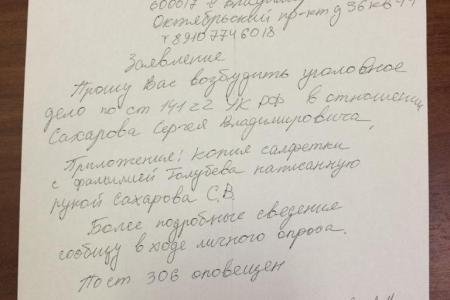 600017 г Владимир
Октябрьский пр-кт д 36 кв
т 89107746018
Заявление
Прошу Вас возбудить уголовное
дело по ст 141 ч2 УК РФ в отношении
Сахарова Сергея Владимировича,
Приложения: копия салфетки
с фамилией Голубева написанную
рукой Сахарова С.В.
Более подробные сведение
сообщу в ходе личного опроса.
По ст 306 оповещен